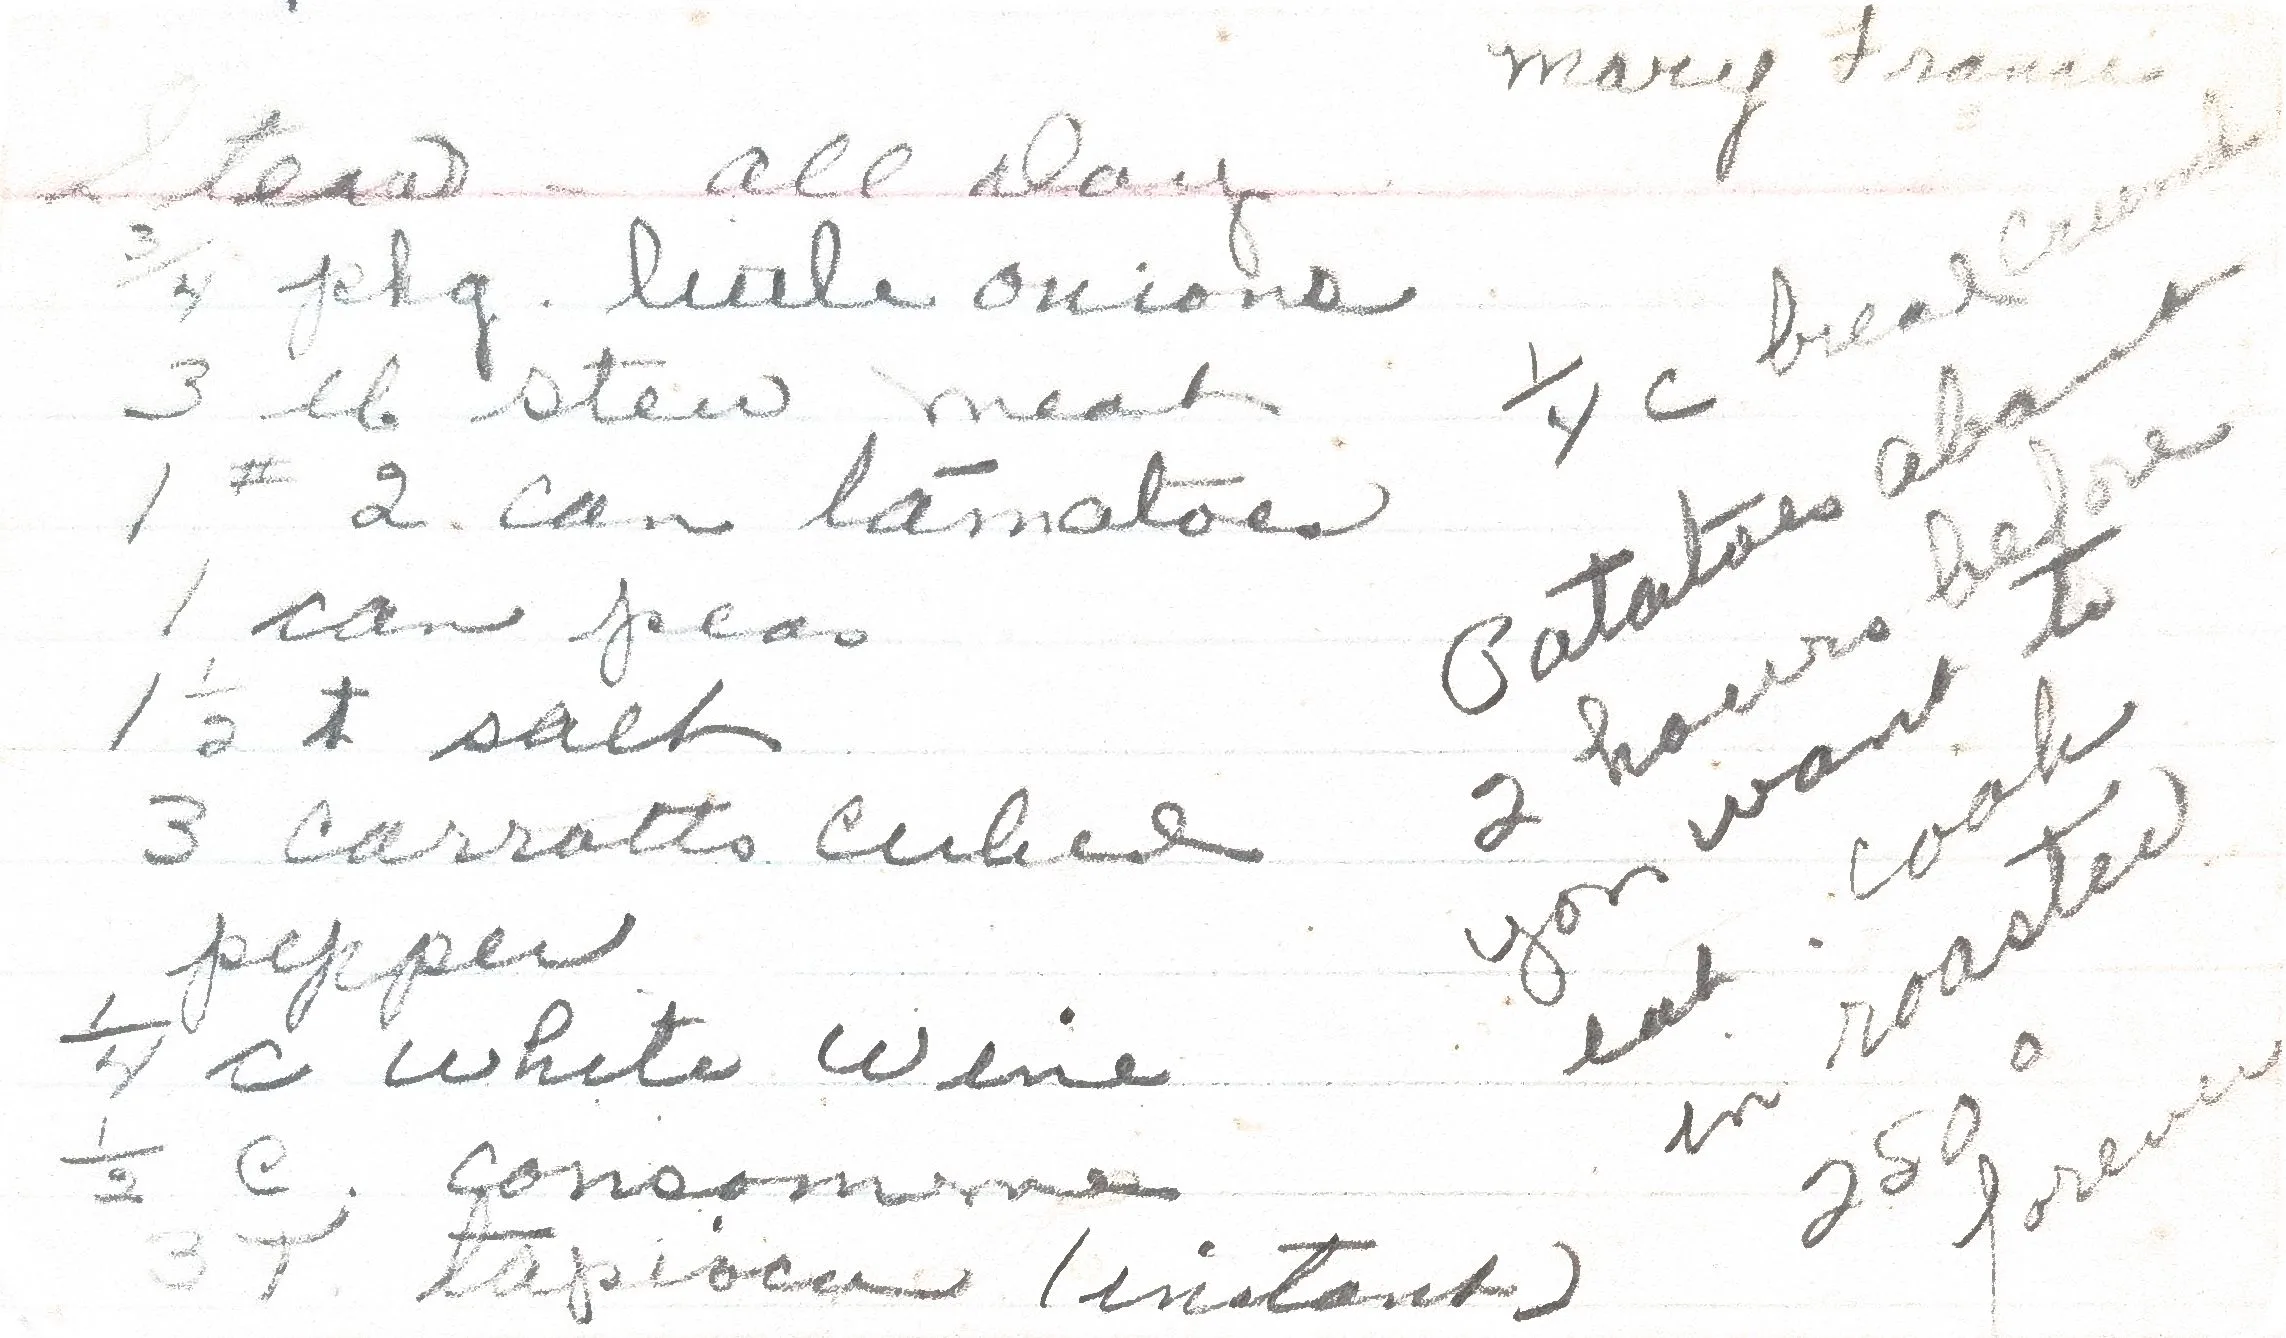 Mary Francis
Stew - all day
3/4 pkg. little onions
3 lb stew meat
1 # 2 can tamatoes
1 can peas
1 1/2 t salt
3 carrotts cubed
pepper
1/4 c white wine
1/2 c. consomme
3 T. tapioca (instant)
1/4 c bread crumbs
Patatoes about
2 hours before
you want to
eat. cook
in roaster
250°
forever